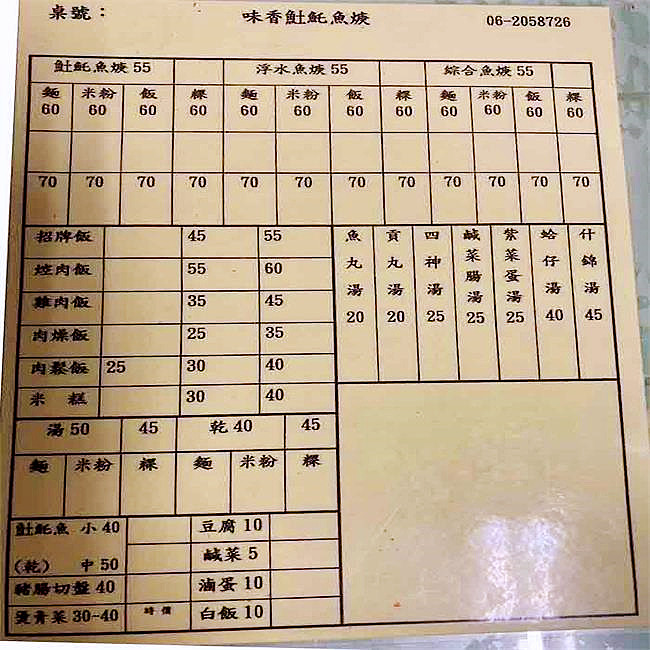 桌號： 味香魠魠魚焿 06-2058726
魠魠魚焿 55 浮水魚焿 55 綜合魚焿 55
麵 米粉 飯 粿 麵 米粉 飯 粿 麵 米粉 飯 粿
60 60 60 60 60 60 60 60 60 60 60 60
70 70 70 70 70 70 70 70 70 70 70 70
招牌飯 45 55
焢肉飯 55 60
雞肉飯 35 45
肉燥飯 25 35
肉鬆飯 25 30 40
米糕 30 40
魚丸湯 20
貢丸湯 20
四神湯 25
鹹菜腸湯 25
紫菜蛋湯 25
蛤仔湯 40
什錦湯 45
湯 50 45 乾 40 45
麵 米粉 粿 麵 米粉 粿
魠魠魚 小 40 豆腐 10
(乾) 中 50 鹹菜 5
豬腸切盤 40 滷蛋 10
燙青菜 30-40 時價 白飯 10